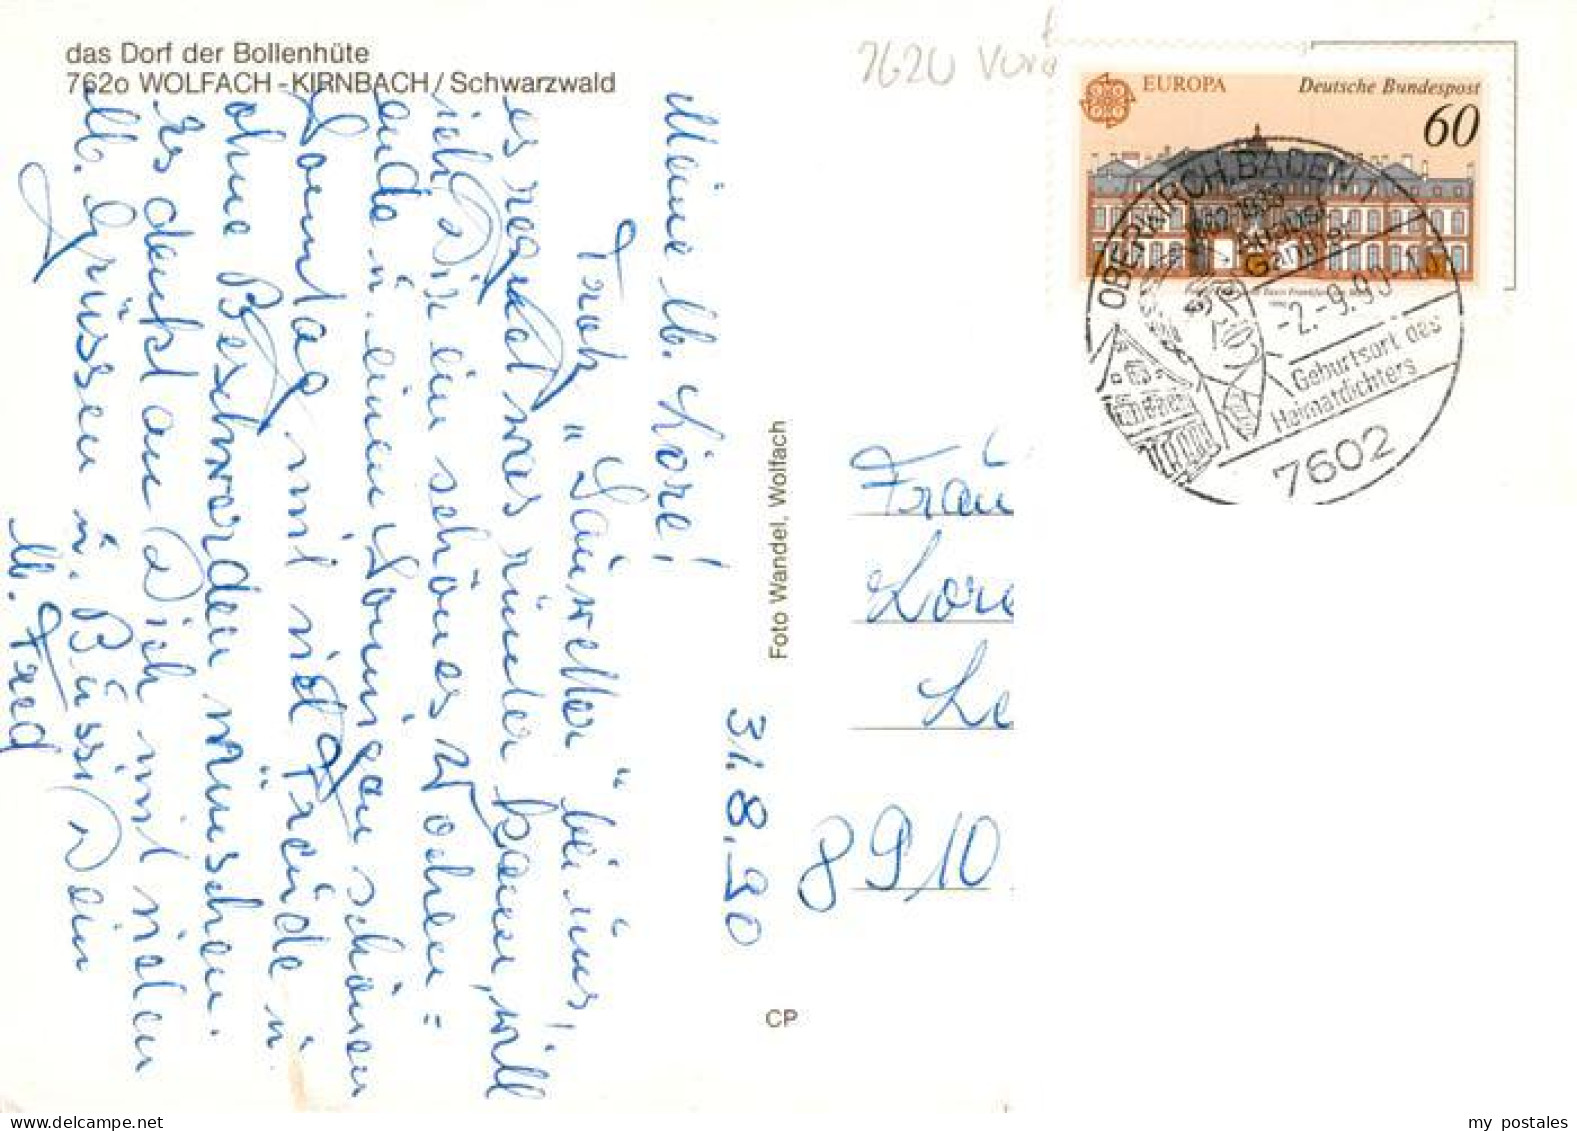 das Dorf der Bollenhüte
762o WOLFACH-KIRNBACH/Schwarzwald
7620
Meine lb. Lore!
Trotz "Sauwetter" bei uns,
es regnet was runter kann, will
ich Dir ein schönes Wochen=
ende u. einen sonnigen schönen
Sonntag mit viel Freude u.
ohne Beschwerden wünschen.
Es denkt an Dich mit vielen
lb. Grüssen u. Bussi Dein
lb. Fred
31.8.90
Foto Wandel, Wolfach
CP
EUROPA
Deutsche Bundespost
60
OBERKIRCH, BADEN 1
August
Ganther
-2.-9.90
Geburtsort des
Heimatdichters
7602
Frau
Lore
Le
8910
my postales